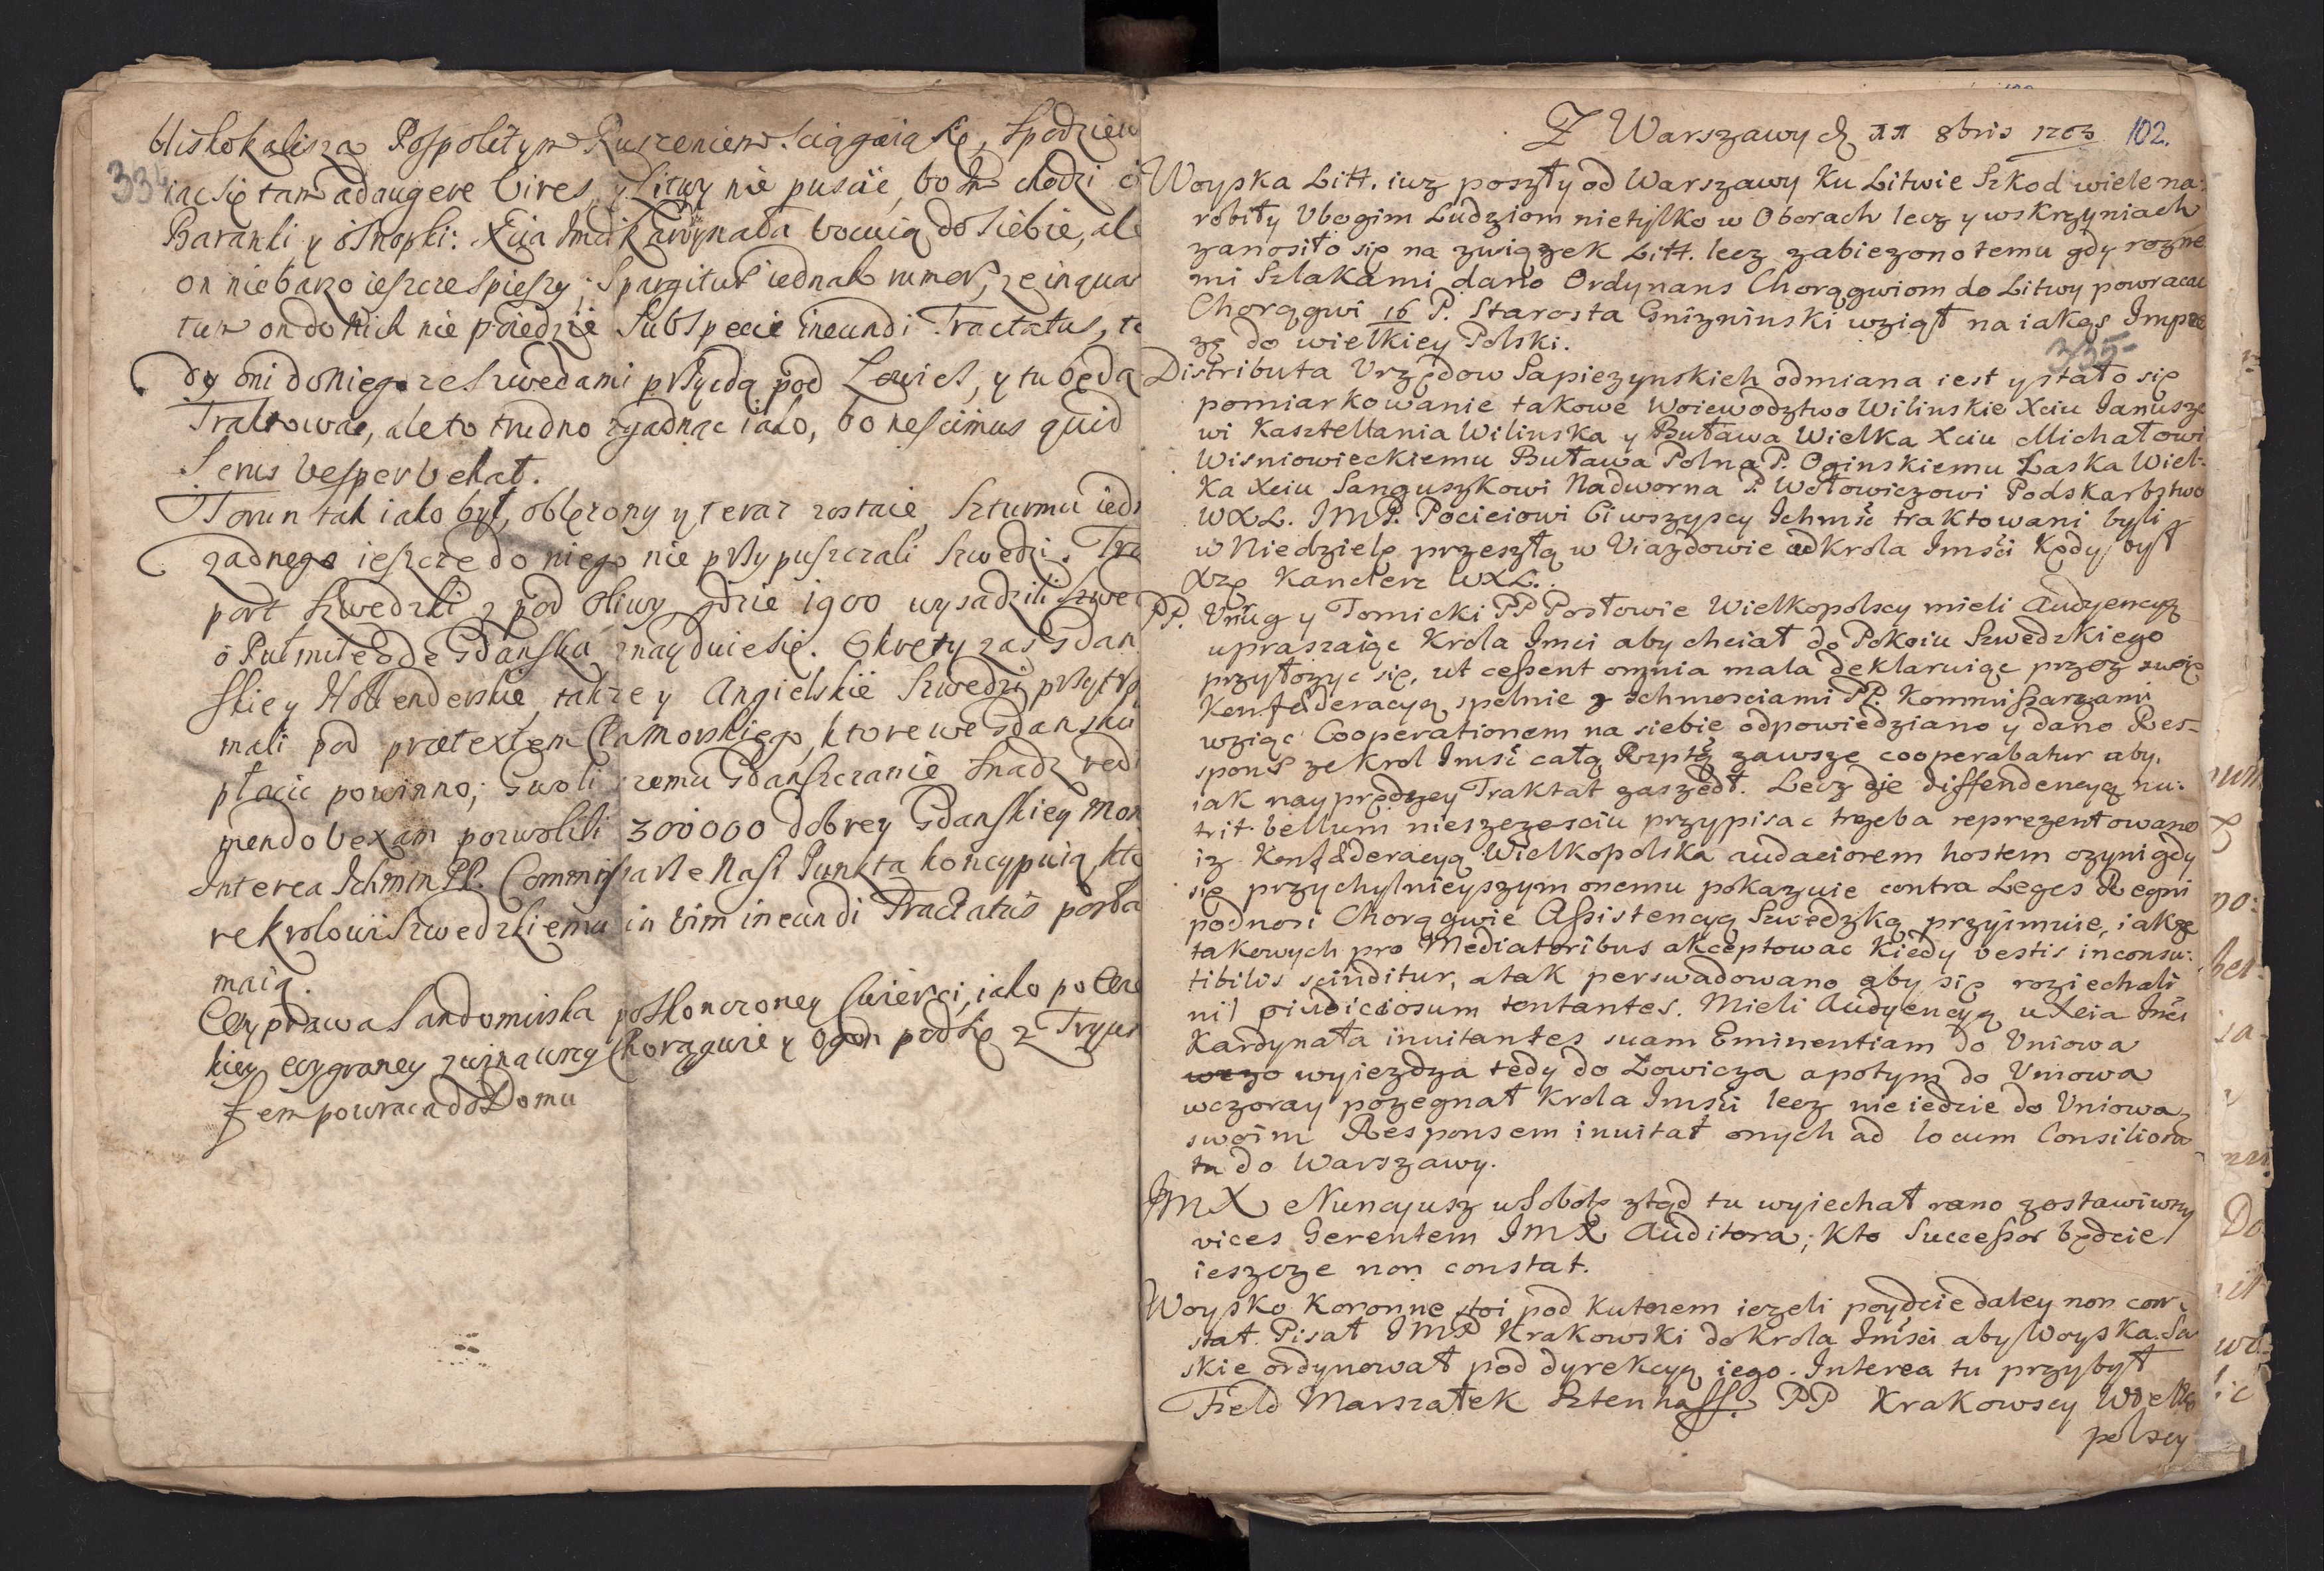 334
blisko kalisza Pospolitym Ruszeniem sciągaią się, spodziew
iąc się tam adaugere vires, y Litwy nie puscic, bo Im chodzi o
Baranki y o Snopki: Xcia Imci Kardynała wocuią do siebie, ale
on niebarzo ieszcze spieszy; Spargitur iednak rumor, ze inquan
tum on do nich nie poiedzie sub specie ineundi Tractatus, te
dy oni do niego ze szwedami przyydą pod Lowicz, y tu będą
Traktowac, ale to trudno zgadnąc iako, bo nescimus quid
Serus vesper vehat.
Torun tak iako był, oblęzony y teraz zostaie, Szturmu iedn
zadnego ieszcze do niego nie przypuszczali Szwedzi. Tra
port Szwedzki z pod Oliwy gdzie 1900 wysadzili Szwe
o Puł mile ode Gdanska znayduie się. Okręty zas Gdan
skie y Hollenderskie, takze y Angielskie Szwedzi przytrzy
mali pod prætextem Cła Morskiego, ktore we Gdansku
płacic powinno; Gwoli czemu Gdanszczanie snadz redi
mendo vexam pozwolili 300000 dobrey Gdanskiey Mon
Interea Ichmm PP. Commissarze Nasi Puncta koncypuią, kto
re krolowi Szwedzkiemu in vim ineundi Tractatus porta
maią.
Wyprawa Sandomirska po skonczoney Cwierci, iako po
kiey wygraney zwinąwszy Chorągwie y Ogon pod się z Tryum
fem powraca do Domu
Z Warszawy d 11 8bris 1703 102.
Woyska Litt. iuz poszły od Warszawy Ku Litwie Szkod wiele na:
robiły Vbogim Ludziom nietylko w Oborach lecz y w skrzyniach
zanosiło się na związek Litt. lecz zabiezono temu gdy rozne
mi Szlakami dano Ordynans Chorągwiom do Litwy powracac
Chorągwi 16 P. Starosta Gnizninski wziął na iakąs Impre
zę do wielkiey Polski.
335
Distributa Vrzędow Sapiezynskich odmiana iest y stało się
pomiarkowanie takowe Woiewodztwo Wilinskie Xciu Ianuszo
wi Kasztellania Wilinska y Buława Wielka Xciu Michałowi
Wisniowieckiemu Buława Polna P. Oginskiemu Laska Wiel-
ka Xciu Sanguszkowi Nadworna P. Wołowiczowi Podskarbstwo
WXL. IMP. Pocieiowi Ci wszyscy Ichmsc traktowani byli
w Niedzielę przeszłą w Viazdowie od krola Imsci kędy był
Xzę Kanclerz WXL.
PP. Vnrug y Tomicki PP Posłowie Wielkopolscy mieli Audyencyą
upraszaiąc Krola Imci aby chciał do Pokoiu Szwedzkiego
przyłozyc się, ut cessent omnia mala deklaruiąc przez swoię
Konfæderacyą spolnie z Ichmosciami PP. Kommissarzami
wziąc Cooperationem na siebie odpowiedziano y dano Res-
pons ze krol Imsc całą Rzptą zawsze cooperabatur aby
iak nayprędzey Traktat zaszedł. Lecz ze diffendencyą nu:
trit bellum nieszczesciu przypisac trzeba reprezentowano
iz Konfæderacyą Wielkopolska audaciorem hostem czyni gdy
się przychylnieyszym onemu pokazuie contra Leges Regni
podnosi Chorągwie Assistencyą Szwedzką przyimuie, iakze
takowych pro Mediatoribus akceptowac kiedy vestis inconsu:
tibilis scinditur, a tak perswadowano aby się roziechali
nil piudiciosum tentantes. Mieli Audyencyą u Xcia Imci
Kardynała inuitantes suam Eminentiam do Vniowa
wyiezdza tedy do Łowicza a potym do Vniowa
wczoray pozegnał krola Imsci lecz nie iedzie do Vniowa
swoim Responsem inuitał onych ad locum Consiliora
tu do Warszawy.
IMX Nuncyusz w Sobotę ztąd tu wyiechał rano zostawiwszy
vices Gerentem IMX Auditora; kto Successor będzie
ieszcze non constat.
Woysko Koronne stoi pod Kutnem iezeli poydzie daley non con
stat. Pisał IMP Krakowski do krola Imsci aby Woyska Sa
skie ordynował pod dyrekcyą iego. Interea tu przybył
Field Marszałek Sztenhaff. PP Krakowscy Wielko
polscy